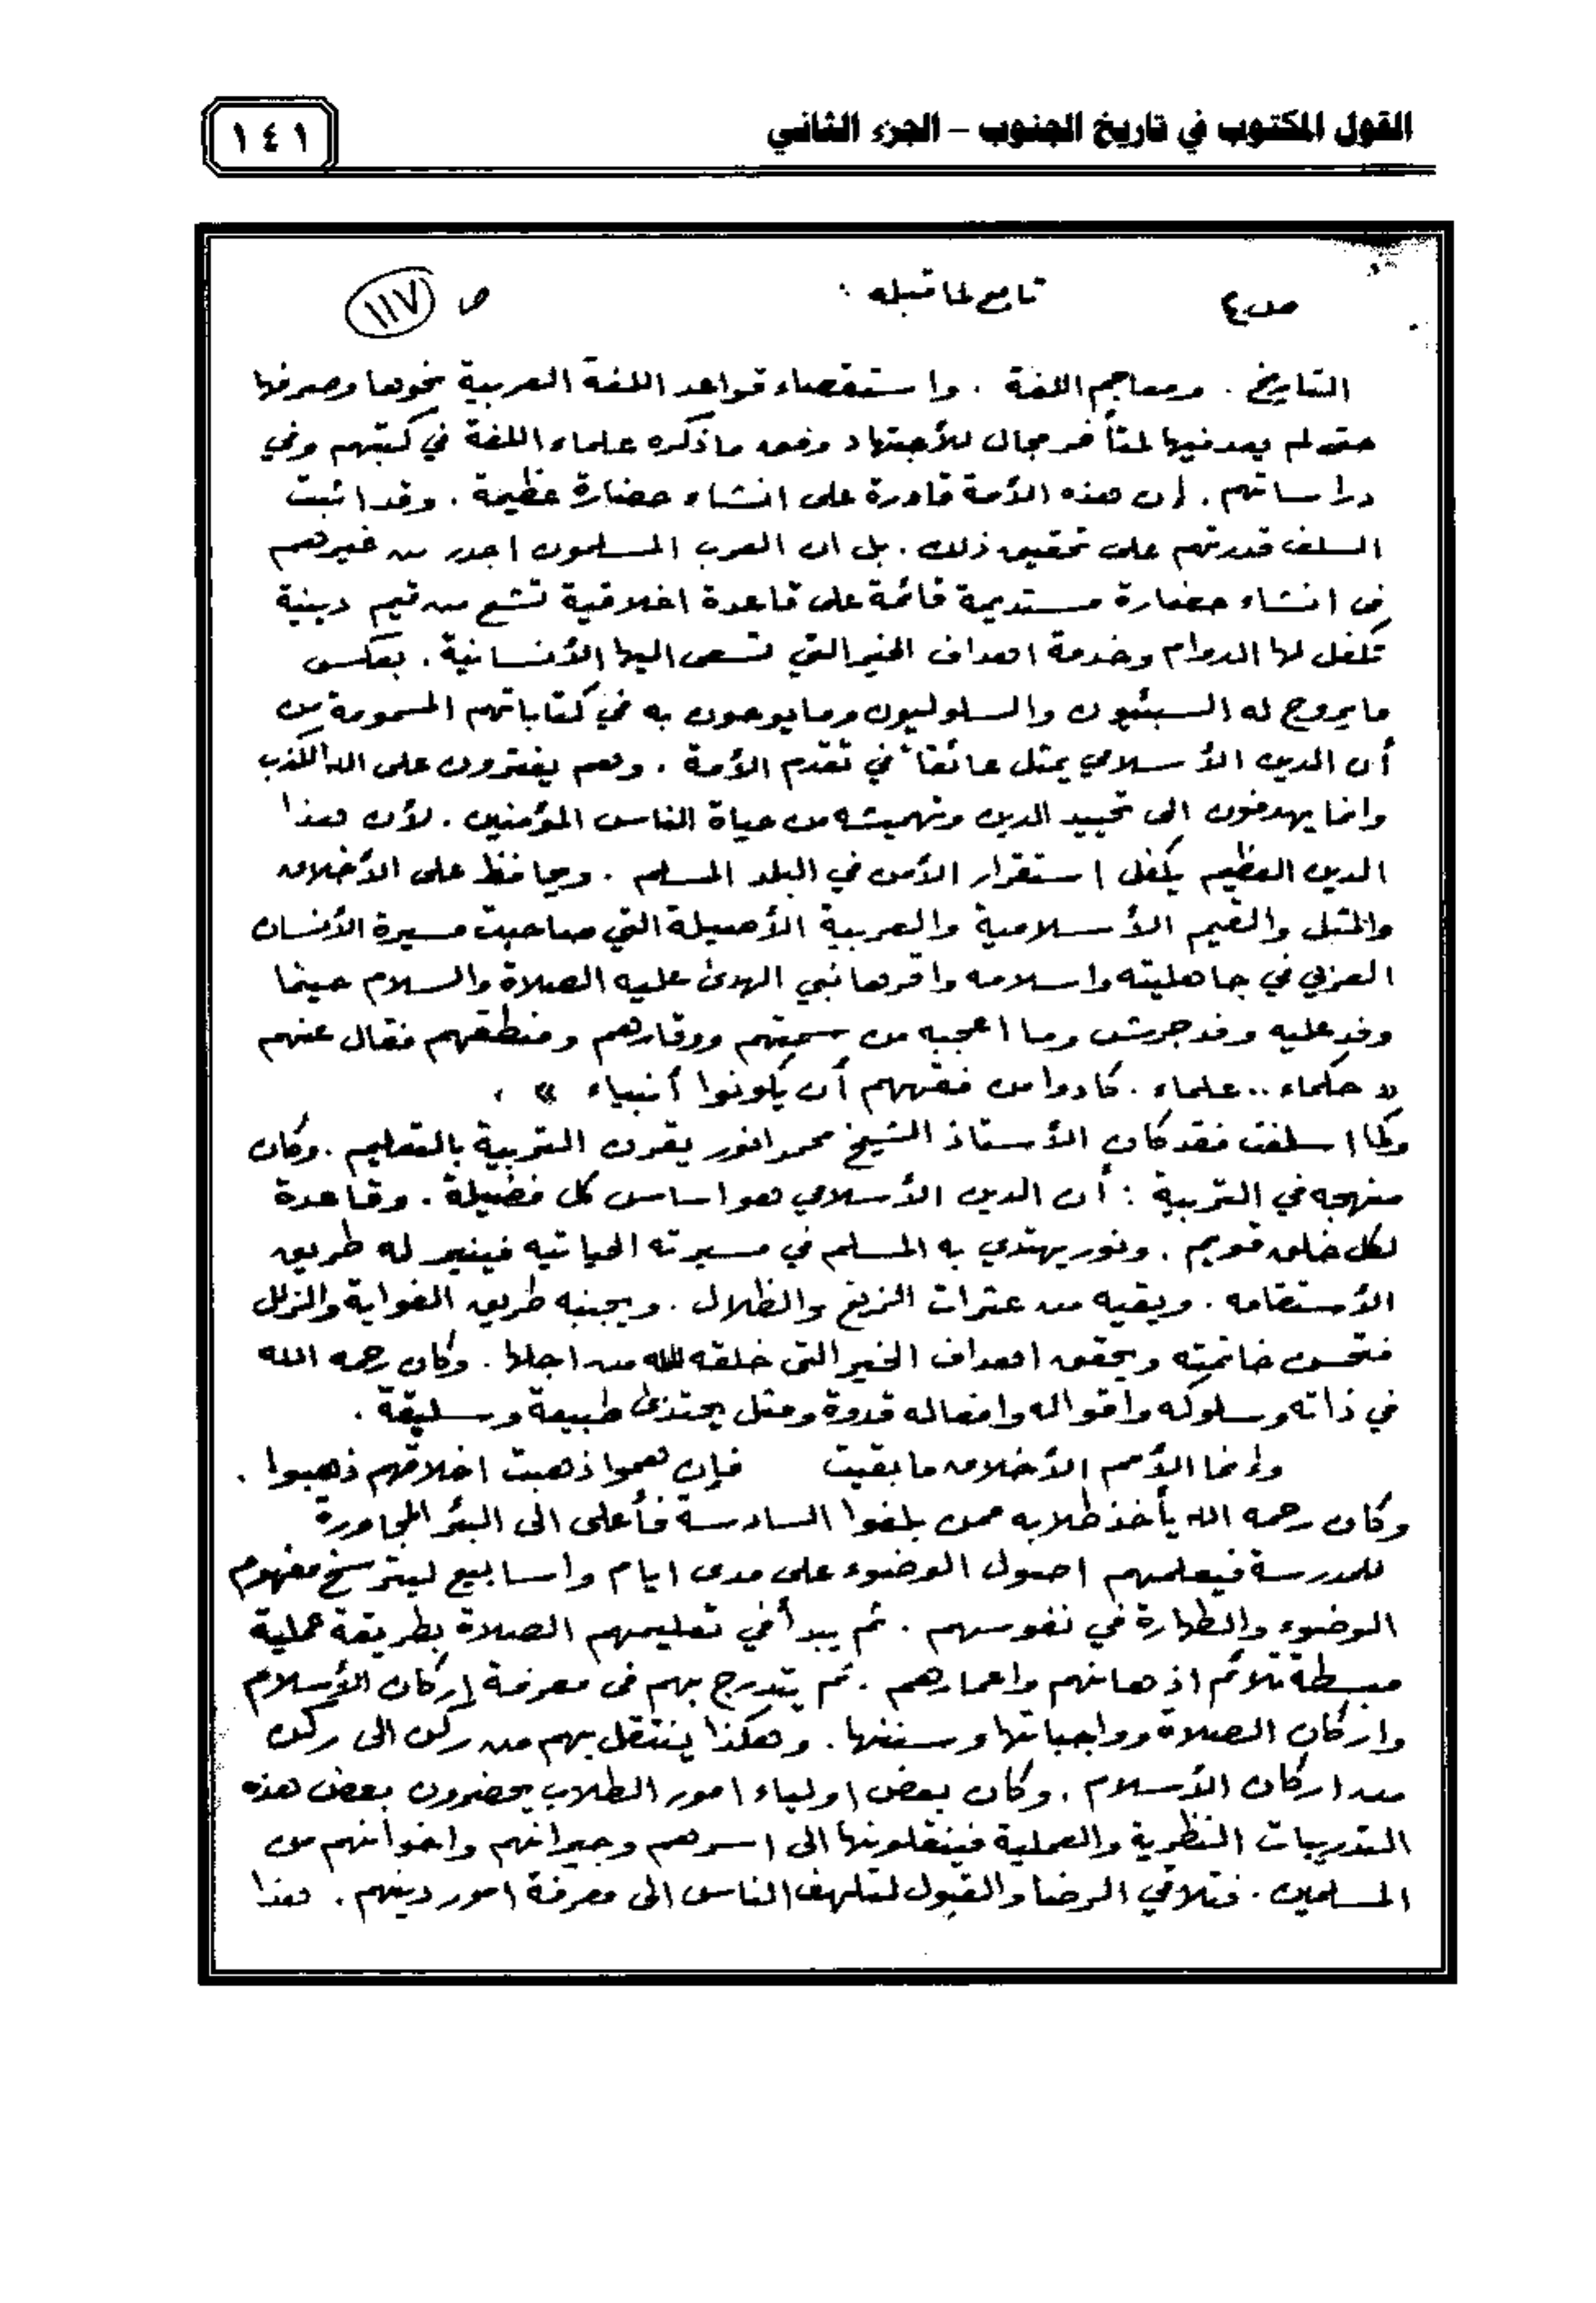 القول المكتوب في تاريخ الجنوب – الجزء الثاني
١٤١
ص٤ تابع لما قبله : ص ١١٧
التاريخ . ومعاجم اللغة . واستقصاء قواعد اللغة العربية نحوها وصرفها
حتى لم يعد فيها لمتأخر مجال للأجتهاد وفق ما ذكره علماء اللغة في كتبهم وفي
دراساتهم . إن هذه الأمة قادرة على انشاء حضارة عظيمة . وقد اثبت
السلف قدرتهم على تحقيق ذلك . بل ان العرب المسلمون اجدر من غيرهم
في انشاء حضارة مستديمة قائمة على قاعدة اخلاقية تشع من قيم دينية
تكفل لها الدوام وخدمة اهداف الخير التي تسعى اليها الأنسانية . بعكس
ما يروج له السبئيون والسلوليون وما يوحون به في كتاباتهم المسمومة من
أن الدين الأسلامي يمثل عائقاً في تقدم الأمة . وهم يفترون على الله الكذب
وانما يهدفون الى تحييد الدين وتهميشه من حياة الناس المؤمنين . لأن هذا
الدين العظيم يكفل استقرار الأمن في البلد المسلم . ويحافظ على الأخلاق
والمثل والقيم الأسلامية والعربية الأصيلة التي صاحبت مسيرة الأنسان
العربي في جاهليته واسلامه واقرها نبي الهدى عليه الصلاة والسلام حينما
وفد عليه وفد جرش وما اعجبه من سمتهم ووقارهم ومنطقهم فقال عنهم
« حكماء .. علماء . كادوا من فقههم أن يكونوا أنبياء » .
وكما اسلفت فقد كان الأستاذ الشيخ محمد انور يقرن التربية بالتعليم . وكان
منهجه في التربية : أن الدين الأسلامي هو اساس كل فضيلة . وقاعدة
لكل خلق قويم . ونور يهتدي به المسلم في مسيرته الحياتيه فينير له طريق
الأستقامه . ويقيه من عثرات الزيغ والظلال . ويجنبه طريق الغواية والزلل
فتحسن خاتمته ويحقق اهداف الخير التي خلقه الله من اجلها . وكان رحمه الله
في ذاته وسلوكه واقواله وافعاله قدوة ومثل يحتذى طبيعة وسليقة .
وإنما الأمم الأخلاق ما بقيت فإن همو ذهبت اخلاقهم ذهبوا .
وكان رحمه الله يأخذ طلابه ممن بلغوا السادسة فأعلى الى البئر المجاورة
للمدرسة فيعلمهم اصول الوضوء على مدى ايام واسابيع ليترسخ مفهوم
الوضوء والطهارة في نفوسهم . ثم يبدأ في تعليمهم الصلاة بطريقة عملية
مبسطة تلائم اذهانهم واعمارهم . ثم يتدرج بهم في معرفة إركان الأسلام
واركان الصلاة وواجباتها وسننها . وهكذا ينتقل بهم من ركن الى ركن
من اركان الأسلام . وكان بعض اولياء امور الطلاب يحضرون بعض هذه
التدريبات النظرية والعملية فينقلونها الى اسرهم وجيرانهم واخوانهم من
المسلمين . فتلاقي الرضا والقبول لتلهف الناس الى معرفة امور دينهم . هذا